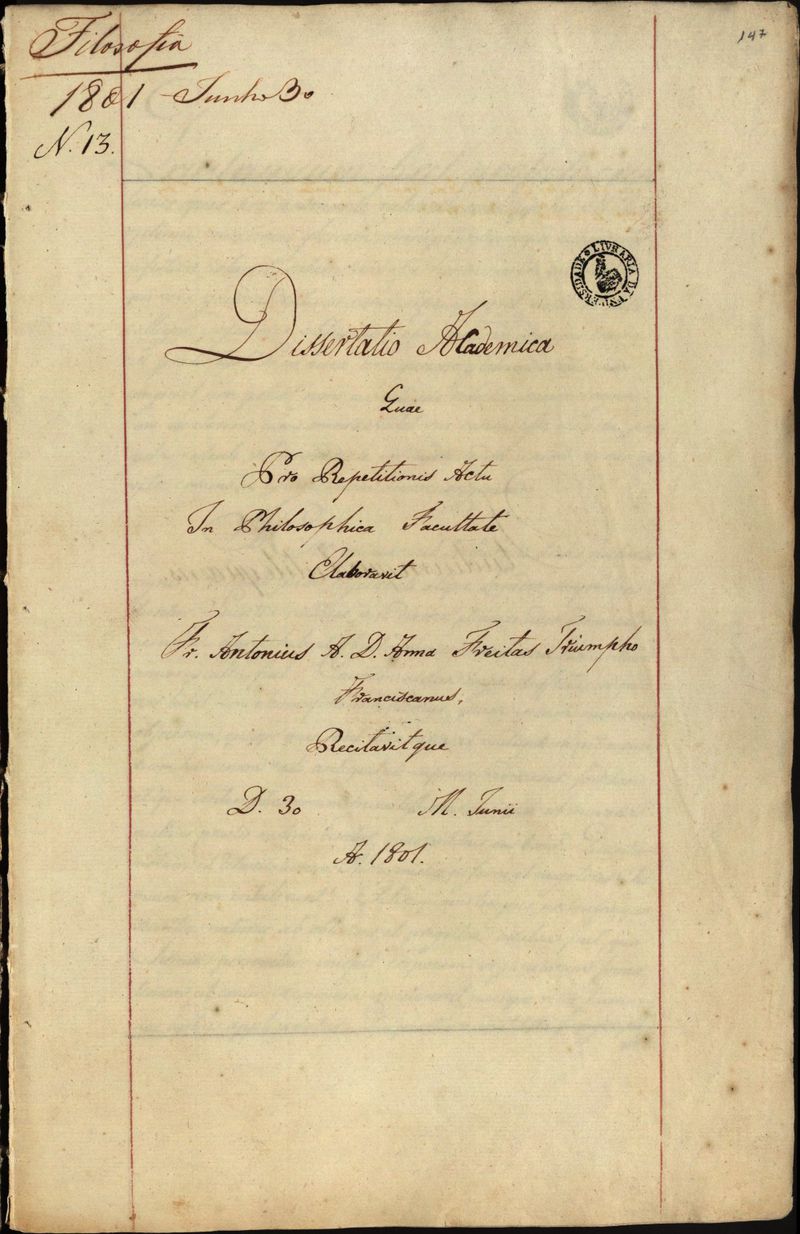 147
Filosofia
1801 - Junho 30
N. 13.
LIVRARIA DA UNIVERSIDADE
Dissertatio Academica
Quae
Pro Repetitionis Actu
In Philosophica Facultate
Elaboravit
Fr. Antonius A. D. Anna Freitas Triumpho
Franciscanus,
Recitavitque
D. 30 M. Junii
A. 1801.